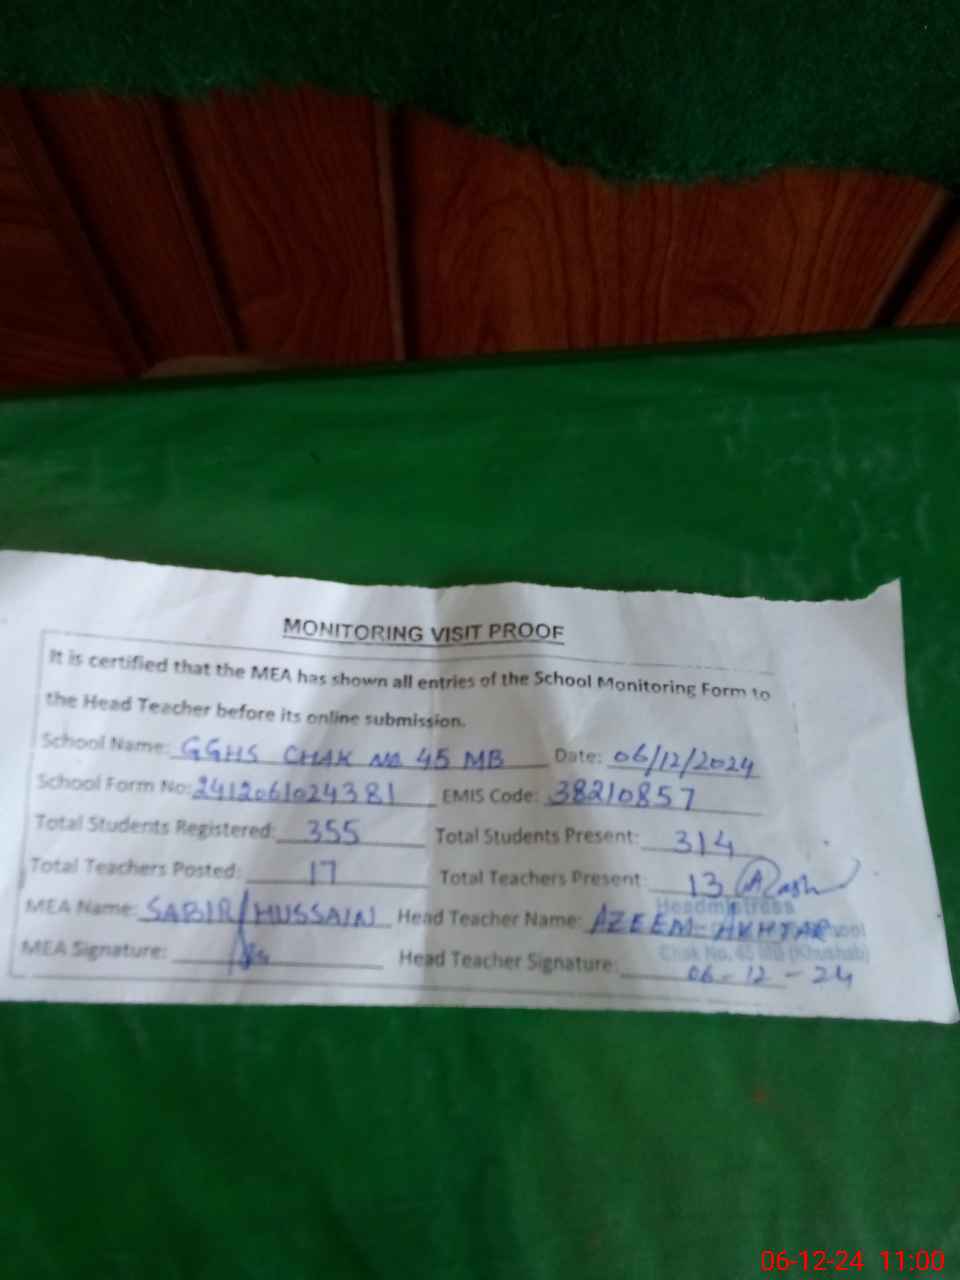 MONITORING VISIT PROOF
It is certified that the MEA has shown all entries of the School Monitoring Form to
the Head Teacher before its online submission.
School Name: GGHS CHAK NO 45 MB Date: 06/12/2024
School Form No: 2412061024381 EMIS Code: 38210857
Total Students Registered: 355 Total Students Present: 314
Total Teachers Posted: 17 Total Teachers Present: 13
Headmistress
MEA Name: SABIR HUSSAIN Head Teacher Name: AZEEM AKHTAR
Chak No. 45 MB (Khushab)
MEA Signature: Head Teacher Signature: 06-12-24
06-12-24 11:00